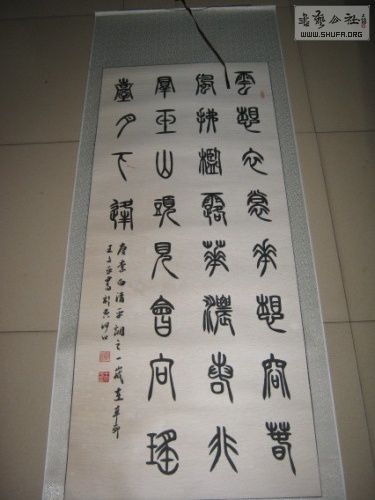 書藝公社
WWW.SHUFA.ORG
雲想衣裳華想容春
風拂檻露華濃若非
群玉山頭見會向瑤
臺月下逢
唐李白清平調之一歲在辛卯